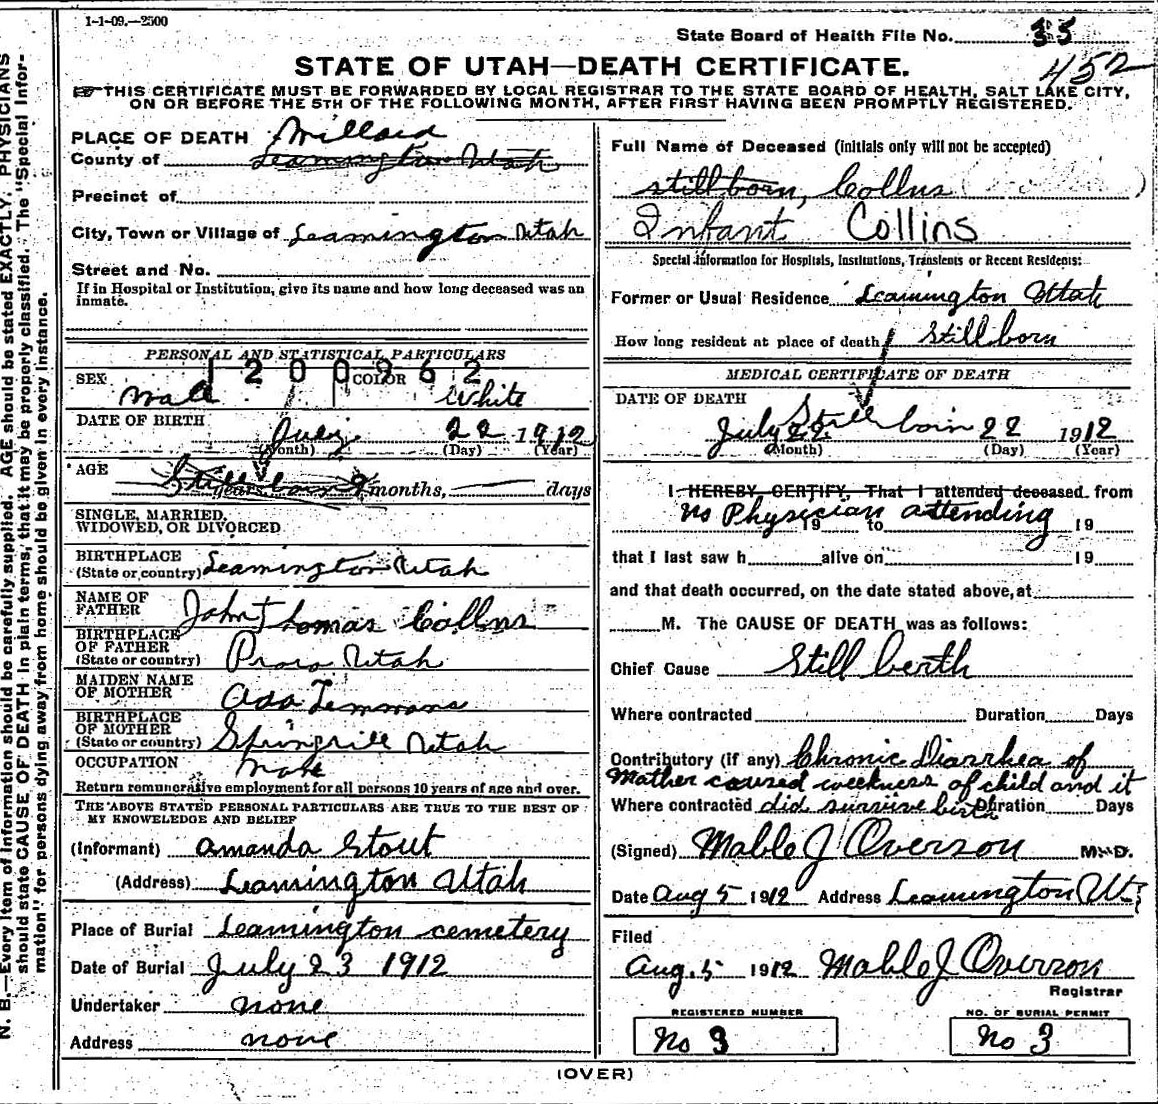 1-1-09.—2500
State Board of Health File No. 35
452
STATE OF UTAH—DEATH CERTIFICATE.
THIS CERTIFICATE MUST BE FORWARDED BY LOCAL REGISTRAR TO THE STATE BOARD OF HEALTH, SALT LAKE CITY,
ON OR BEFORE THE 5TH OF THE FOLLOWING MONTH, AFTER FIRST HAVING BEEN PROMPTLY REGISTERED.
N. B.—Every item of information should be carefully supplied. AGE should be stated EXACTLY. PHYSICIANS
should state CAUSE OF DEATH in plain terms, that it may be properly classified. The "Special Infor-
mation" for persons dying away from home should be given in every instance.
PLACE OF DEATH Millard
County of Leamington Utah
Precinct of
City, Town or Village of Leamington Utah
Street and No.
If in Hospital or Institution, give its name and how long deceased was an
inmate.
PERSONAL AND STATISTICAL PARTICULARS
1200962
SEX male COLOR White
DATE OF BIRTH July 22 1912
(Month) (Day) (Year)
AGE Still born years 9 months, days
SINGLE, MARRIED,
WIDOWED, OR DIVORCED
BIRTHPLACE
(State or country) Leamington Utah
NAME OF
FATHER John Thomas Collns
BIRTHPLACE
OF FATHER
(State or country) Provo Utah
MAIDEN NAME
OF MOTHER Ada Temmons
BIRTHPLACE
OF MOTHER
(State or country) Springville Utah
OCCUPATION
Return remunerative employment for all persons 10 years of age and over.
THE ABOVE STATED PERSONAL PARTICULARS ARE TRUE TO THE BEST OF
MY KNOWELEDGE AND BELIEF
(Informant) Amanda Stout
(Address) Leamington Utah
Place of Burial Leamington cemetery
Date of Burial July 23 1912
Undertaker none
Address none
Full Name of Deceased (initials only will not be accepted)
stillborn, Collns
Infant Collins
Special Information for Hospitals, Institutions, Transients or Recent Residents:
Former or Usual Residence Leamington Utah
How long resident at place of death Stillborn
MEDICAL CERTIFICATE OF DEATH
DATE OF DEATH
Still born
July 22 22 1912
(Month) (Day) (Year)
I HEREBY CERTIFY, That I attended deceased from
no Physician attending
19 to 19
that I last saw h alive on 19
and that death occurred, on the date stated above, at
M. The CAUSE OF DEATH was as follows:
Chief Cause Still berth
Where contracted Duration Days
Contributory (if any) Chronic Diarrhea of
Mother caused weekness of child and it
Where contracted did survive birth Duration Days
(Signed) Mable J Overson M.D.
Date Aug 5 1912 Address Leamington Ut
Filed
Aug. 5 1912 Mable J Overson
Registrar
REGISTERED NUMBER
No 3
NO. OF BURIAL PERMIT
No 3
(OVER)